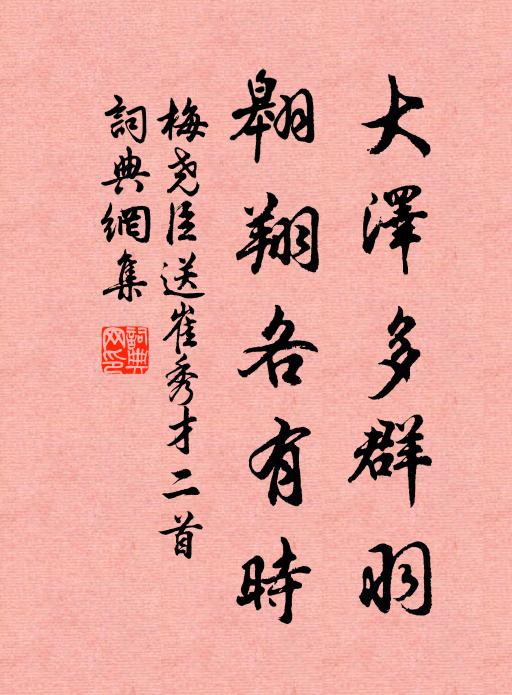 大澤多群羽
翱翔各有時
梅尧臣送崔秀才二首
詞典網集
詞典網印